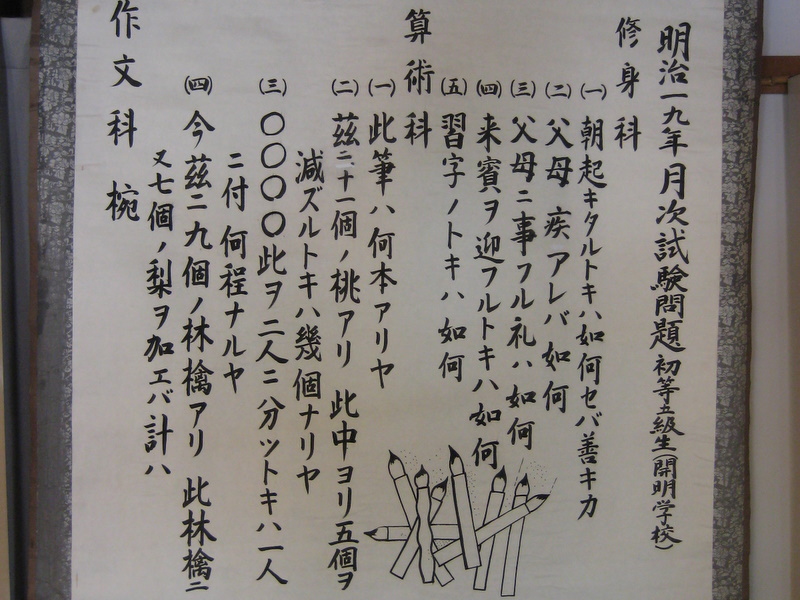 明治一九年月次試験問題 初等五級生(開明学校)
修身科
㈠ 朝起キタルトキハ如何セバ善キカ
㈡ 父母疾アレバ如何
㈢ 父母ニ事フル礼ハ如何
㈣ 来賓ヲ迎フルトキハ如何
㈤ 習字ノトキハ如何
算術科
㈠ 此筆ハ何本アリヤ
㈡ 茲ニ十一個ノ桃アリ 此中ヨリ五個ヲ
減ズルトキハ幾個ナリヤ
㈢ 〇〇〇〇此ヲ二人ニ分ツトキハ一人
ニ付何程ナルヤ
㈣ 今茲ニ九個ノ林檎アリ 此林檎ニ
又七個ノ梨ヲ加エバ計ハ
作文科 椀